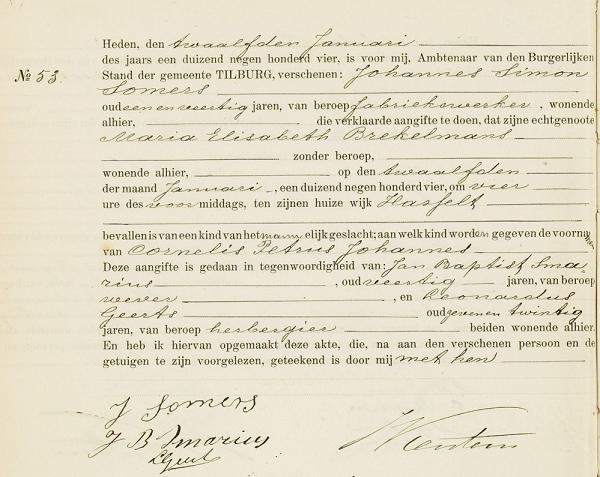 Heden, den twaalfden Januari
des jaars een duizend negen honderd vier, is voor mij, Ambtenaar van den Burgerlijken
No 53
Stand der gemeente TILBURG, verschenen: Johannes Simon
Somers
oud een en veertig jaren, van beroep fabriekswerker, wonende
alhier, die verklaarde aangifte te doen, dat zijne echtgenoote
Maria Elisabeth Brekelmans
zonder beroep,
wonende alhier, op den twaalfden
der maand Januari, een duizend negen honderd vier, om vier
ure des voor middags, ten zijnen huize wijk Hasselt
bevallen is van een kind van het mannelijk geslacht; aan welk kind worden gegeven de voornamen
van Cornelis Petrus Johannes
Deze aangifte is gedaan in tegenwoordigheid van: Jan Baptist Sma-
rius, oud veertig jaren, van beroep
wever, en Leonardus
Geerts oud zeven en twintig
jaren, van beroep herbergier beiden wonende alhier.
En heb ik hiervan opgemaakt deze akte, die, na aan den verschenen persoon en de
getuigen te zijn voorgelezen, geteekend is door mij met hen
J Somers
J B Smarius